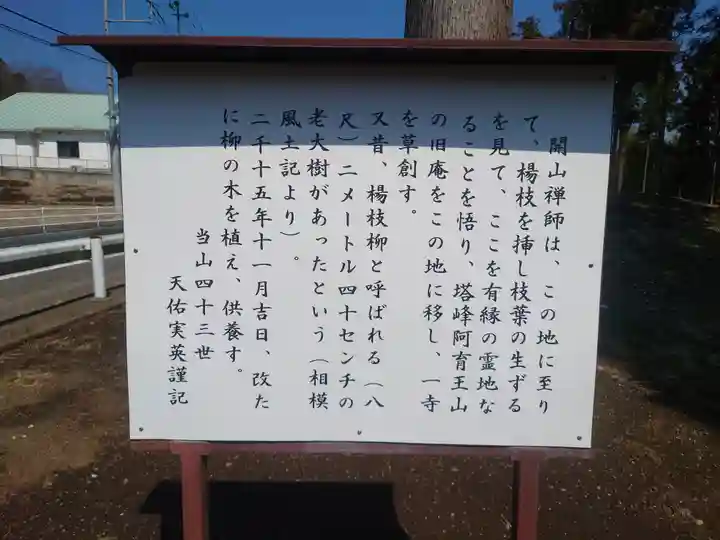 開山禅師は、この地に至り
て、楊枝を挿し枝葉の生ずる
を見て、ここを有縁の霊地な
ることを悟り、塔峰阿育王山
の旧庵をこの地に移し、一寺
を草創す。
又昔、楊枝柳と呼ばれる（八
尺）二メートル四十センチの
老大樹があったという（相模
風土記より）。
二千十五年十一月吉日、改た
に柳の木を植え、供養す。
当山四十三世
天佑実英謹記